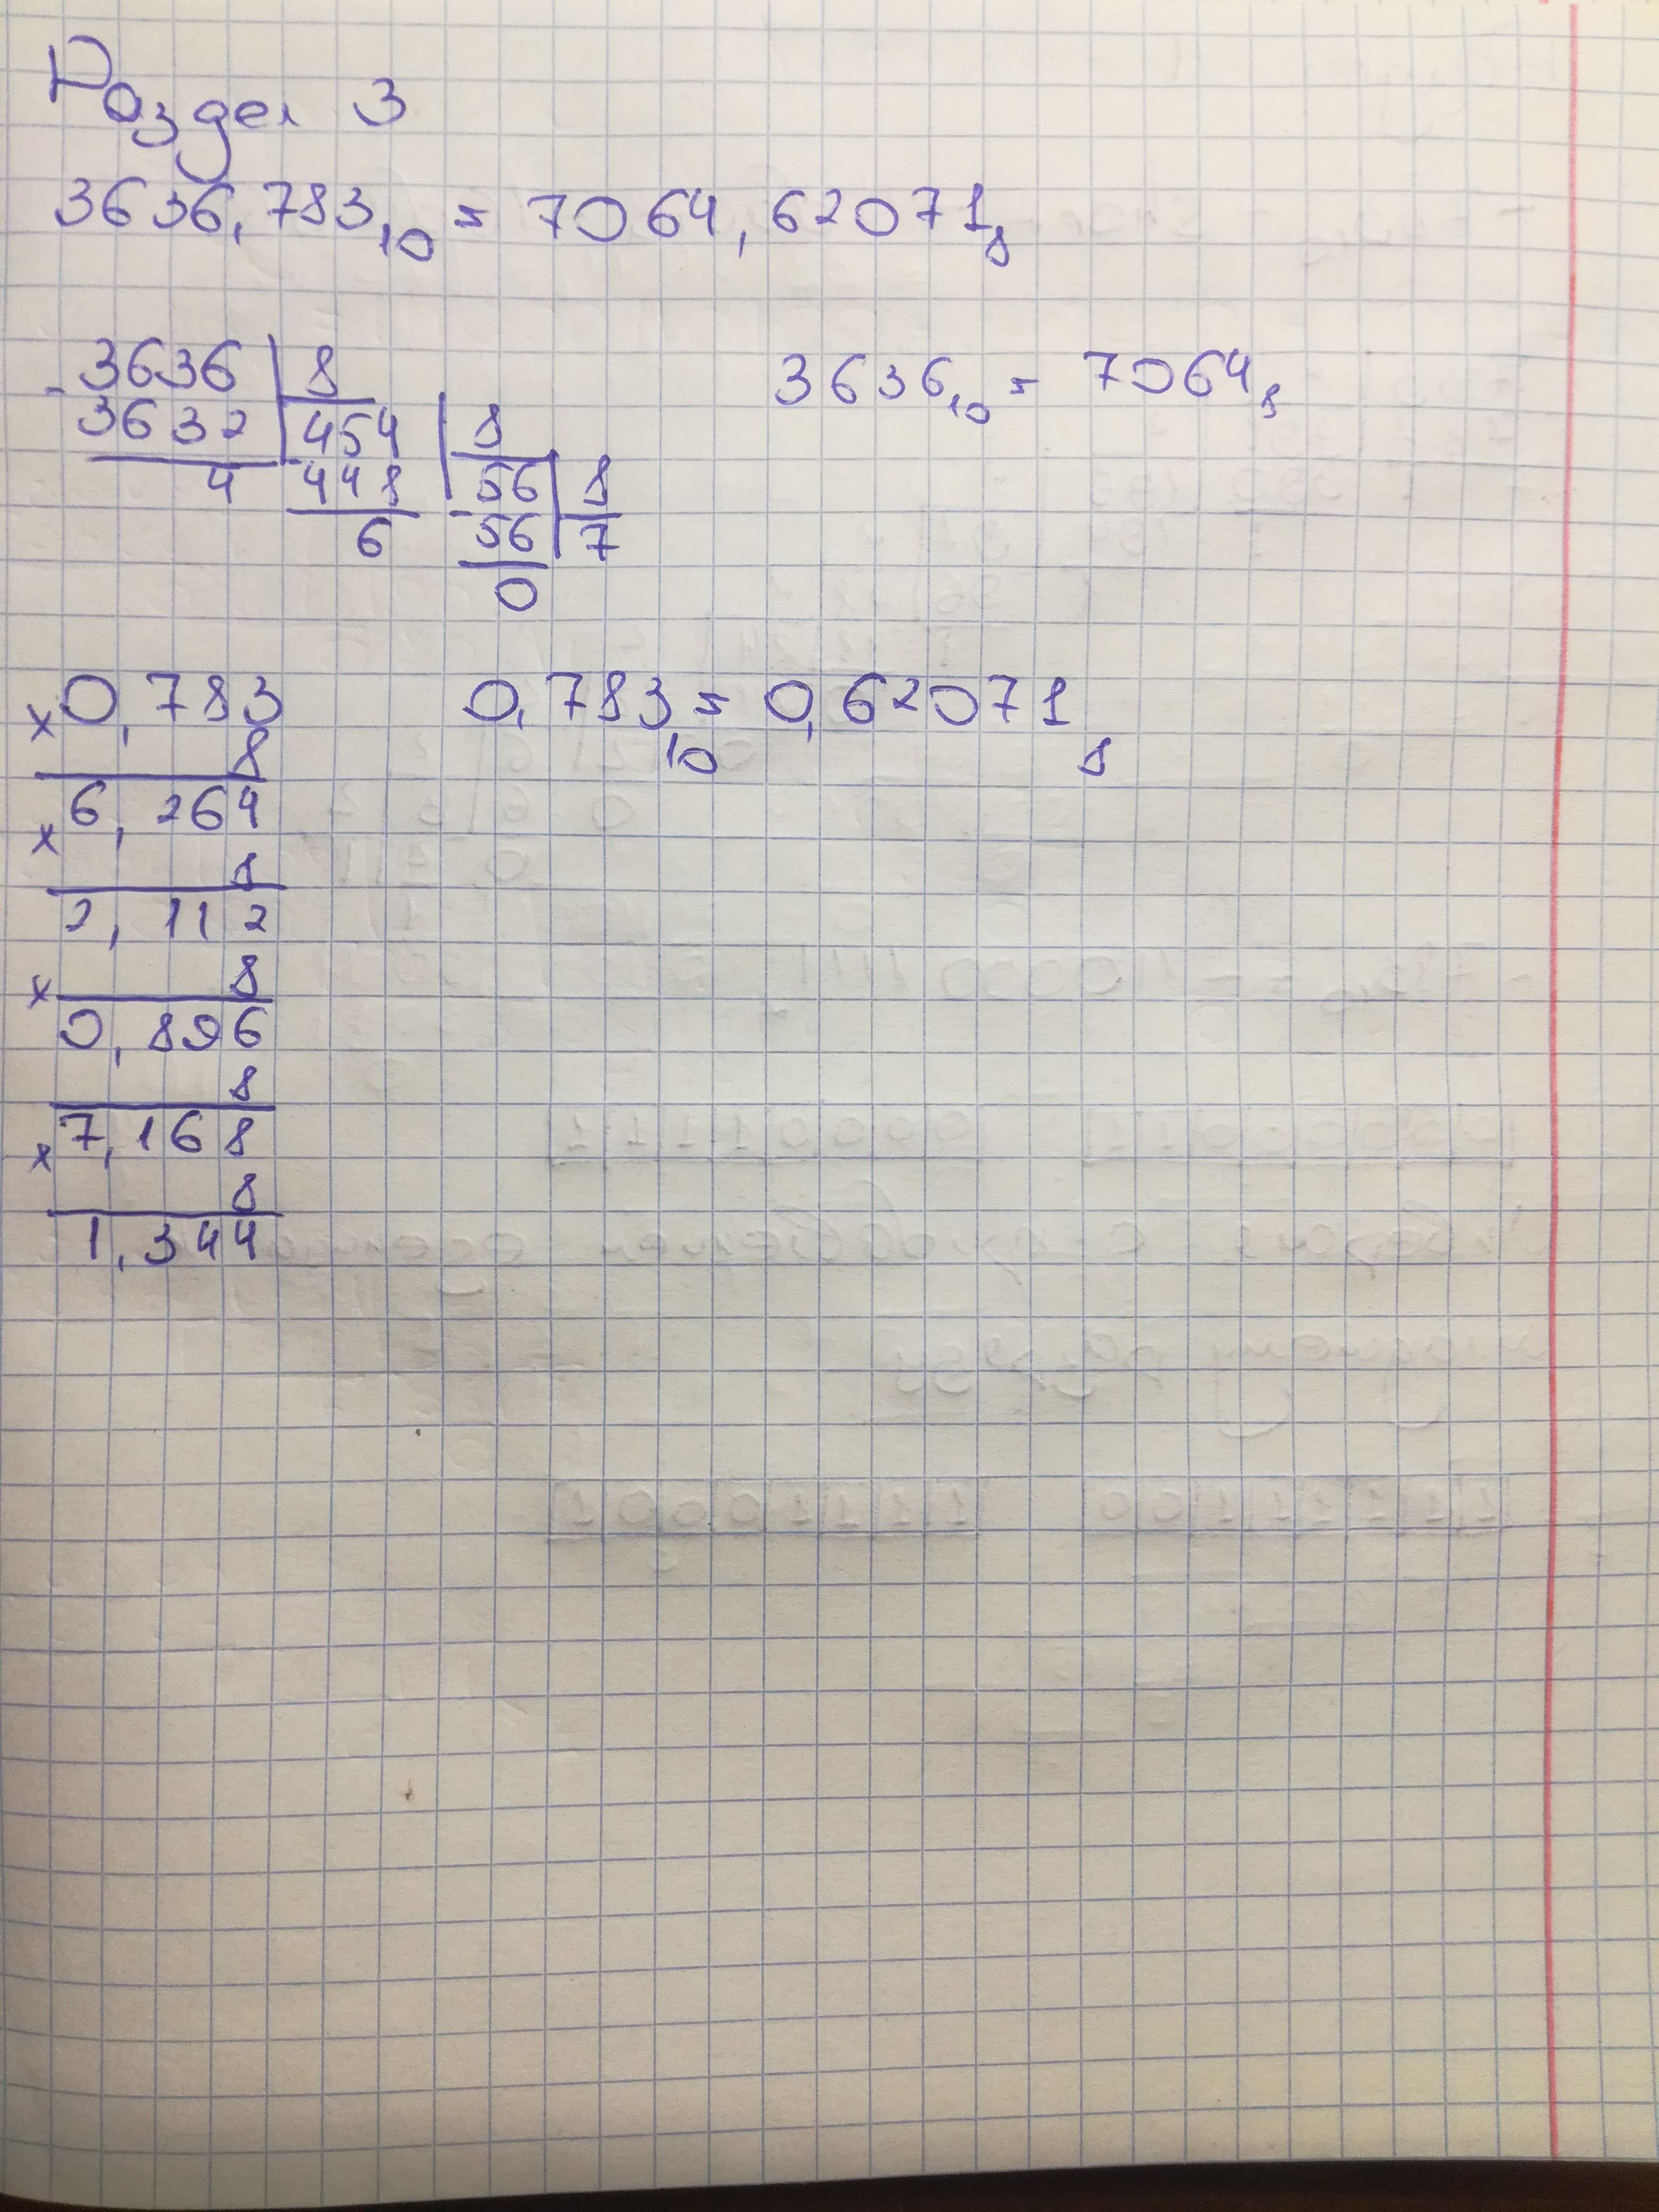 Раздел 3
3636,783₁₀ = 7064,62071₈
- 3636 | 8
3632 | 454 | 8
4 - 448 | 56 | 8
6 - 56 | 7
0
3636₁₀ = 7064₈
× 0,783
8
× 6,264
8
2,112
× 8
0,896
8
× 7,168
8
1,344
0,783₁₀ = 0,62071₈